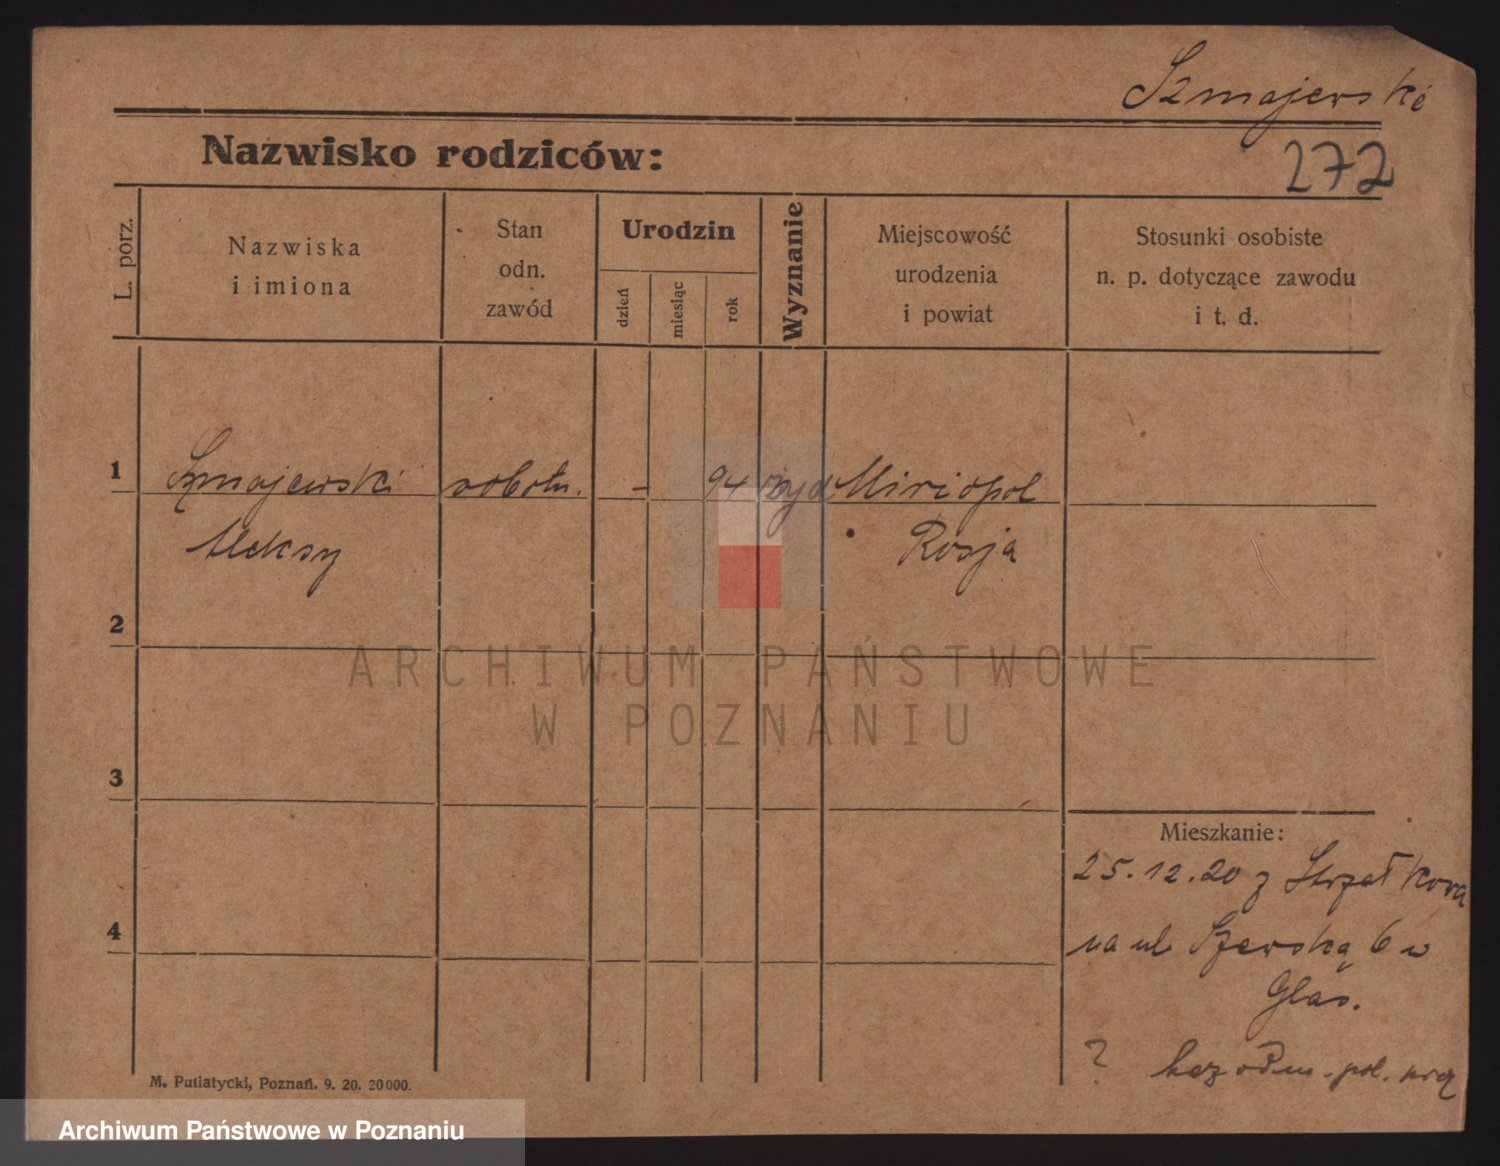 Szmajerski
Nazwisko rodziców:
272
L. porz.
Nazwiska
i imiona
Stan
odn.
zawód
Urodzin
dzień
miesiąc
rok
Wyznanie
Miejscowość
urodzenia
i powiat
Stosunki osobiste
n. p. dotyczące zawodu
i t. d.
1
Szmajewski robotn. - 94 żyd Miriopol
Aleksy Rosja
2
ARCHIWUM PAŃSTWOWE
W POZNANIU
3
Mieszkanie:
25.12.20 z Strzałkowa
4
na ul Szewską 6 w
Glas.
? bez pol.
M. Putiatycki, Poznań. 9. 20. 20000.
Archiwum Państwowe w Poznaniu